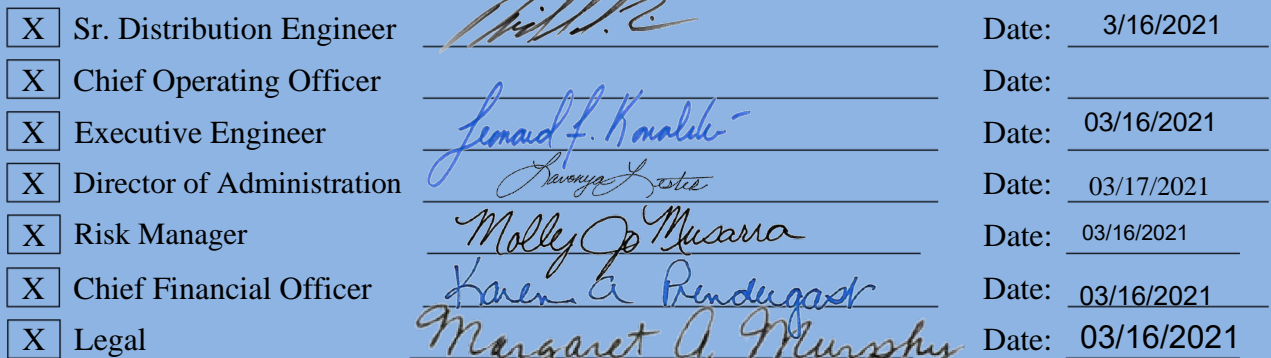 X Sr. Distribution Engineer Date: 3/16/2021
X Chief Operating Officer Date:
X Executive Engineer Leonard F. Kowalski Date: 03/16/2021
X Director of Administration Lavonya Lester Date: 03/17/2021
X Risk Manager Molly Jo Musarra Date: 03/16/2021
X Chief Financial Officer Karen A Prendergast Date: 03/16/2021
X Legal Margaret A. Murphy Date: 03/16/2021